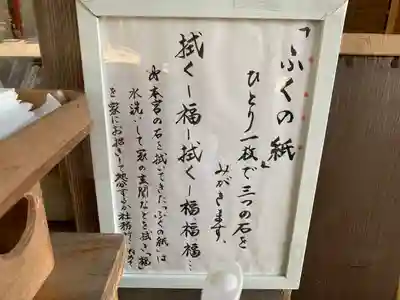 「ふくの紙」
ひとり一枚で三つの石を
みがきます。
拭くー福ー拭くー福、福、福…
石を拭いてきた「ふくの紙」は
水洗いして家の玄関などを拭き「福」
を家にお招き